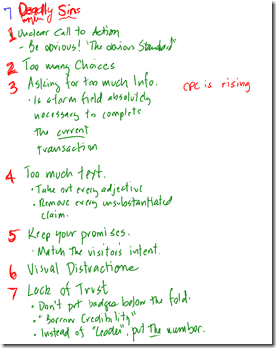 7 Deadly Sins
1 Unclear Call to Action
- Be obvious! "The obvious Standard"
2 Too many Choices
3 Asking for too much Info.
CPC is rising
· Is a form field absolutely
necessary to complete
the current
transaction
4 Too much text.
· Take out every adjective
· Remove every unsubstantiated
claim.
5 Keep your promises.
· Match the visitor's intent.
6 Visual Distractions
7 Lack of Trust
· Don't put badges below the fold.
· "Borrow Credibility"
· Instead of "Leader", put The number.